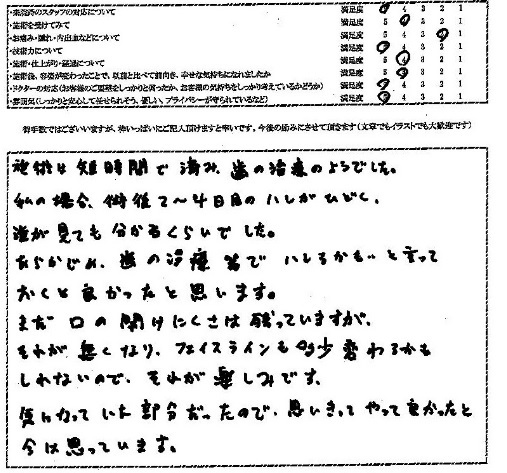 ・来院時のスタッフの対応について 満足度 5 4 3 2 1
・施術を受けてみて 満足度 5 4 3 2 1
・お痛み・腫れ・内出血などについて 満足度 5 4 3 2 1
・技術力について 満足度 5 4 3 2 1
・施術・仕上がり・経過について 満足度 5 4 3 2 1
・施術後、容姿が変わったことで、以前と比べて前向き、幸せな気持ちになれましたか 満足度 5 4 3 2 1
・ドクターの対応(お客様のご要望をしっかりと伺ったか、お客様の気持ちをしっかり考えているかどうか) 満足度 5 4 3 2 1
・雰囲気(しっかりと安心して任せられそう、優しい、プライバシーが守られているなど) 満足度 5 4 3 2 1
御手数ではございいますが、枠いっぱいにご記入頂けますと幸いです。今後の励みにさせて頂きます(文章でもイラストでも大歓迎です)
施術は短時間で済み、歯の治療のようでした。
私の場合、術後2〜4日目のハレがひどく、
誰が見ても分かるくらいでした。
あらかじめ、歯の治療等でハレるかも…と言って
おくと良かったと思います。
まだ口の開けにくさは残っていますが、
それが無くなり、フェイスラインも多少変わるかも
しれないので、それが楽しみです。
気になっていた部分だったので、思いきってやって良かったと
今は思っています。